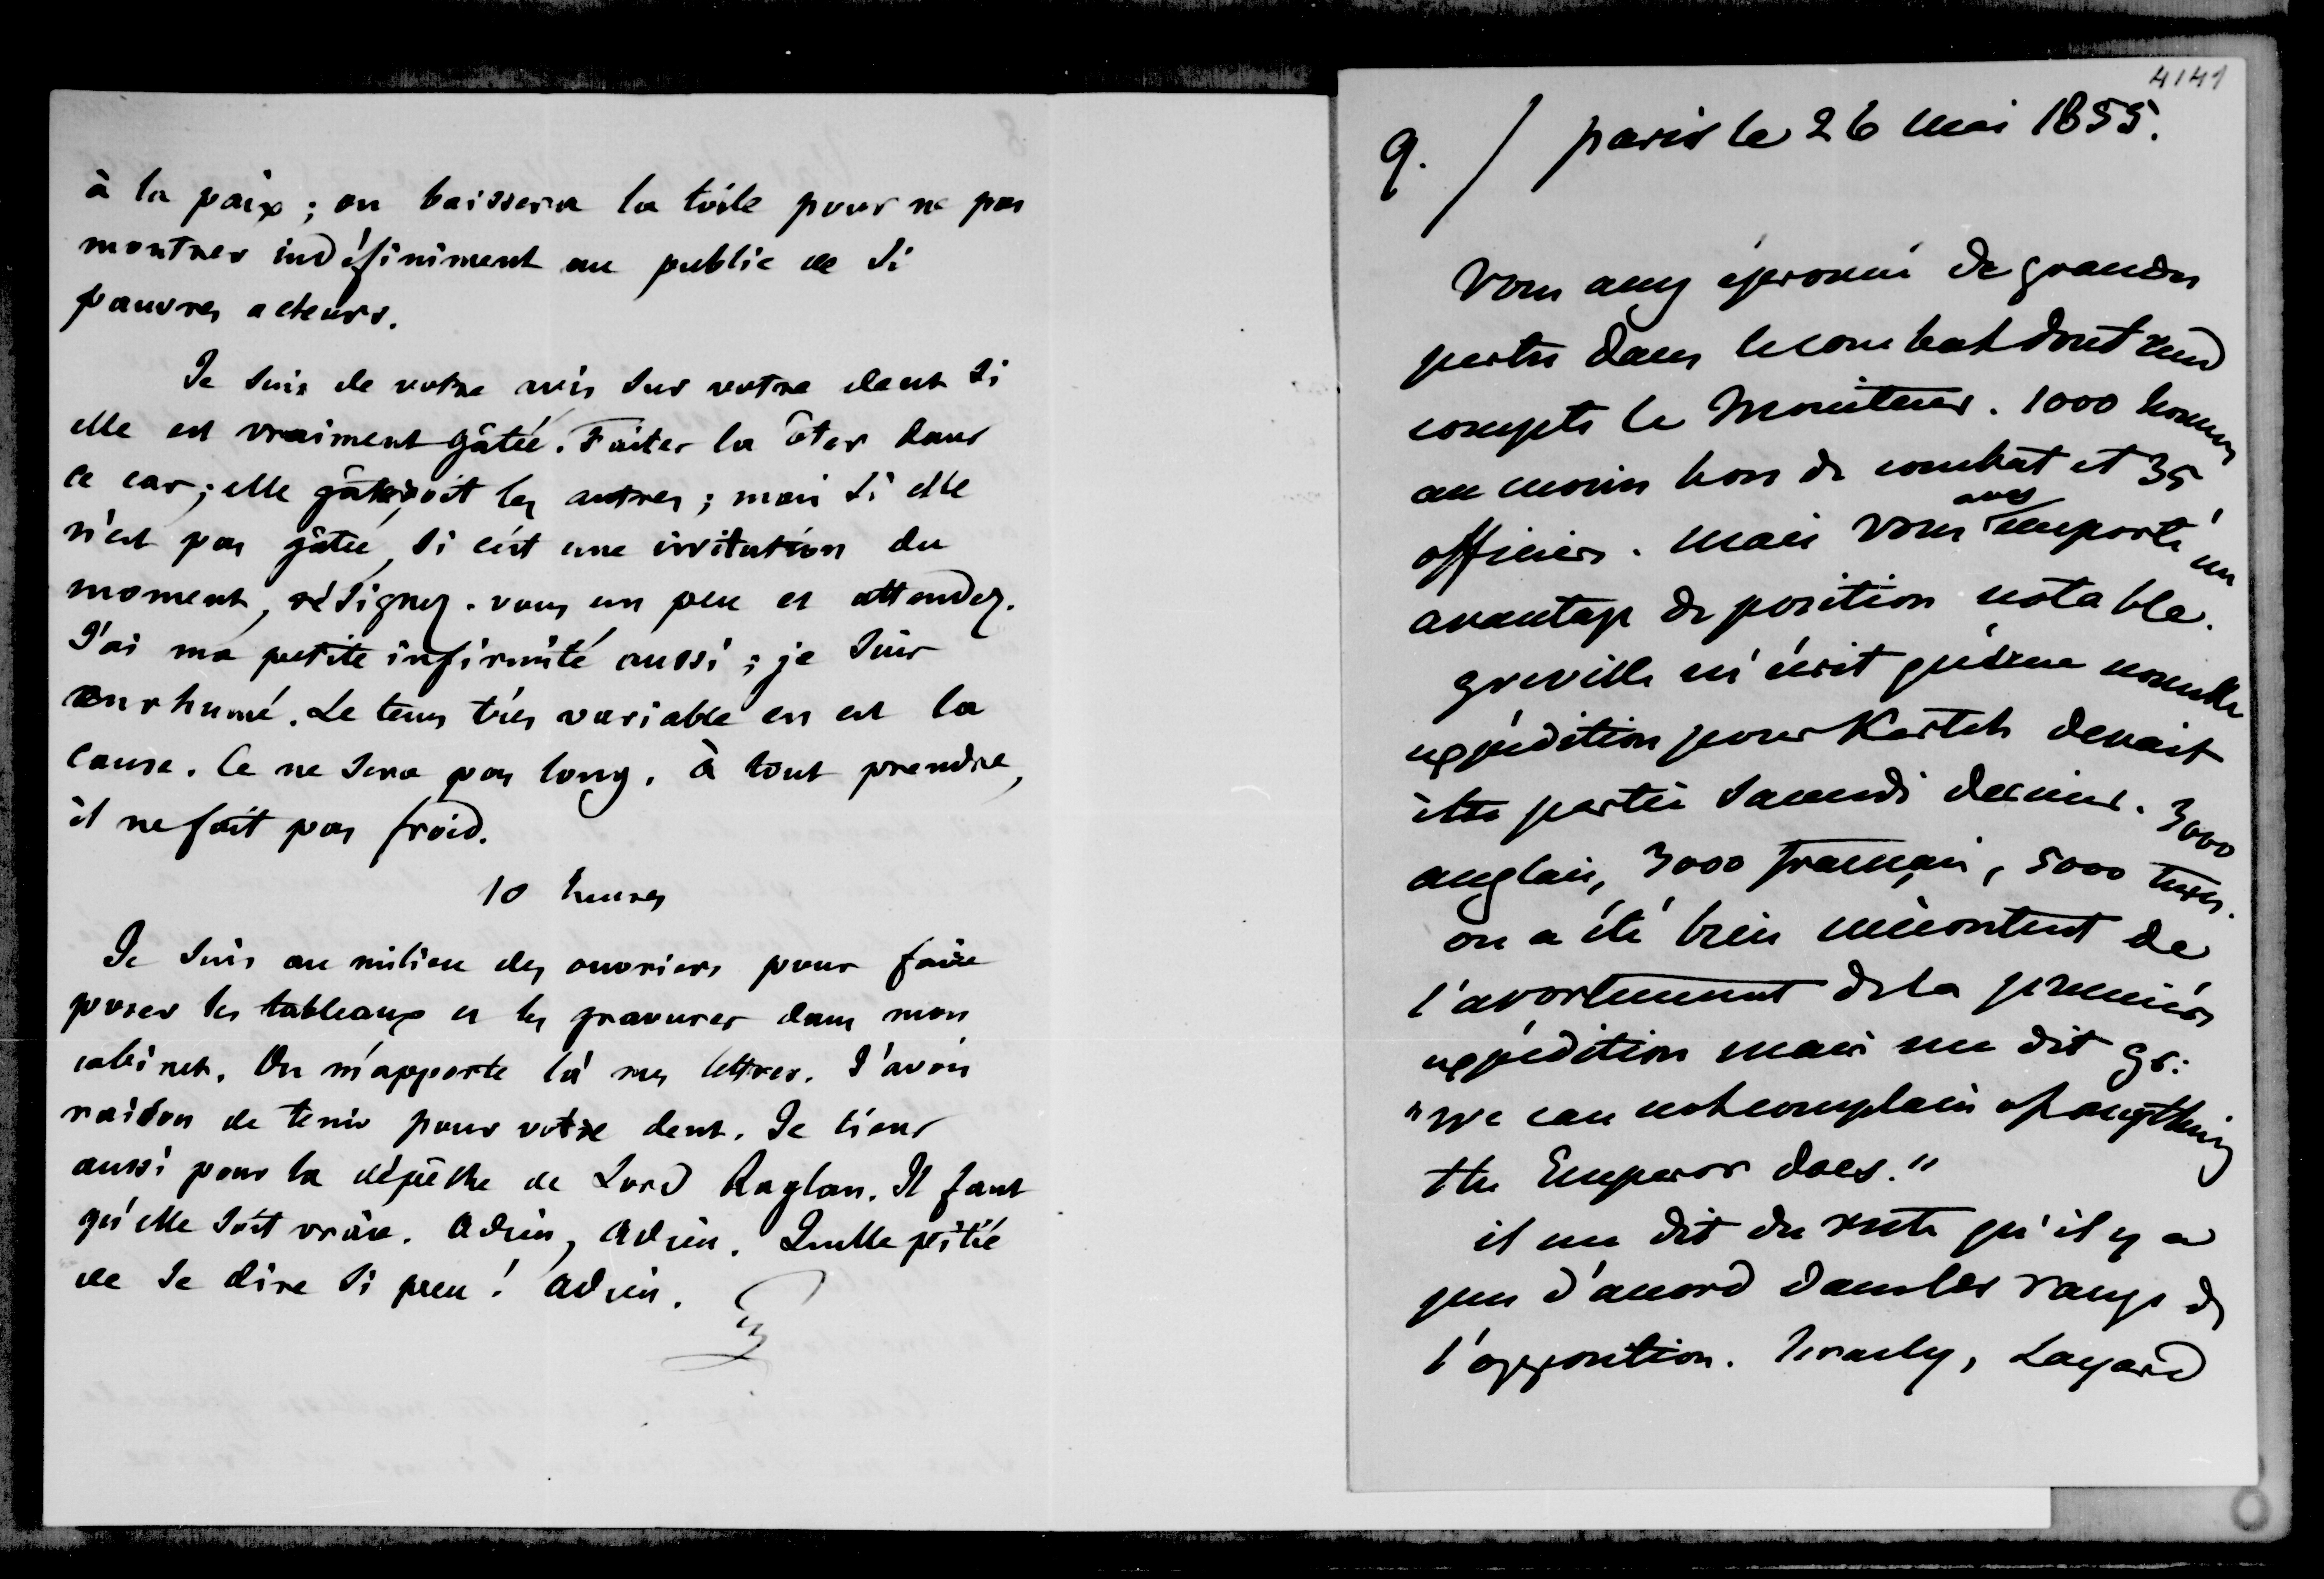 à la paix ; on baissera la toile pour ne pas
montrer indéfiniment au public de si
pauvres acteurs.
Je suis de votre avis sur votre dent si
elle est vraiment gâtée. Faites la ôter dans
ce cas ; elle gâteroit les autres ; mais si elle
n'est pas gâtée, si c'est une irritation du
moment, résignez-vous un peu et attendez.
J'ai ma petite infirmité aussi ; je suis
enrhumé. Le tems très variable en est la
cause. Ce ne sera pas long. à tout prendre,
il ne fait pas froid.
10 heures
Je suis au milieu des ouvriers pour faire
poser les tableaux et les gravures dans mon
cabinet. On m'apporte là mes lettres. J'avois
raison de tenir pour votre dent. Je tiens
aussi pour la dépêche de Lord Raglan. Il faut
qu'elle soit vraie. Adieu, Adieu. Quelle pitié
de se dire si peu ! Adieu.
4141
9. / paris le 26 mai 1855.
vous avez éprouvé de grandes
pertes dans le combat dont rend
compte le Moniteur. 1000 hommes
au moins hors de combat et 35
officiers. mais vous avez emporté un
avantage de position notable.
greville m'écrit qu'une nouvelle
expédition pour Kertch devait
être partie samedi dernier. 3000
anglais, 3000 français, 5000 turcs.
on a été bien mécontent de
l'avortement de la première
expédition mais me dit gr:
"We can not complain of anything
the Emperor does."
il me dit du reste qu'il y a
peu d'accord dans les rangs de
l'opposition. Israely, Layard